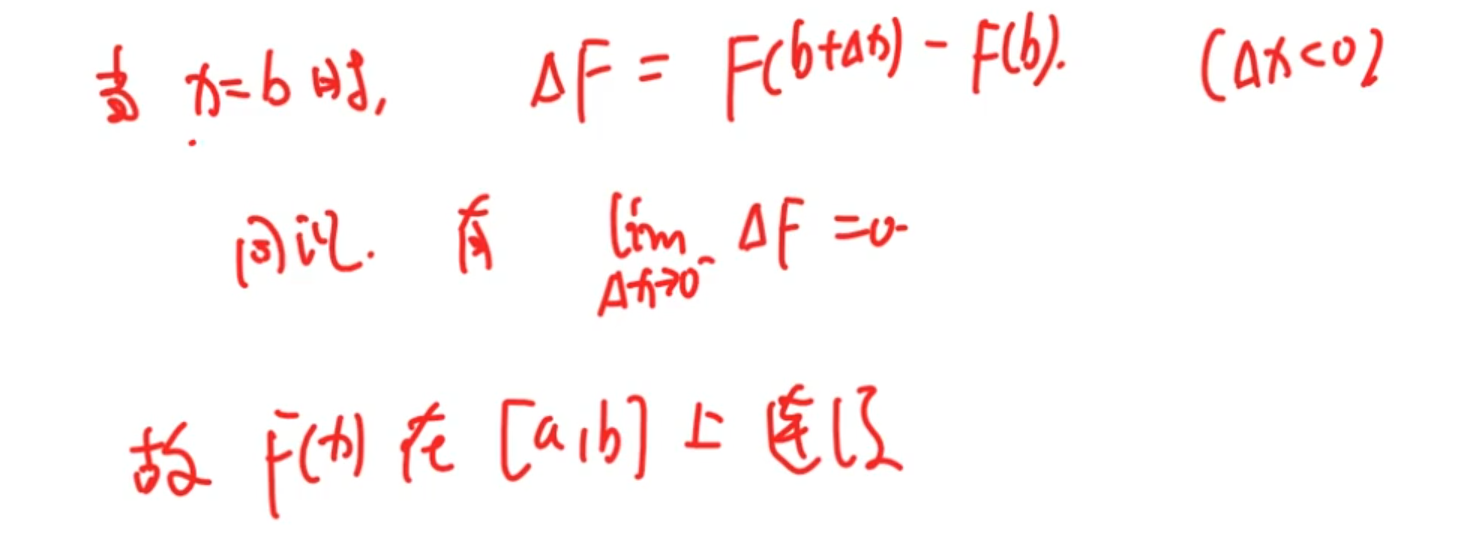 当 x=b 时, ΔF = F(b+Δx) - F(b). (Δx<0)
同理. 有 lim Δx→0⁻ ΔF =0.
故 F(x) 在 [a,b] 上 连续